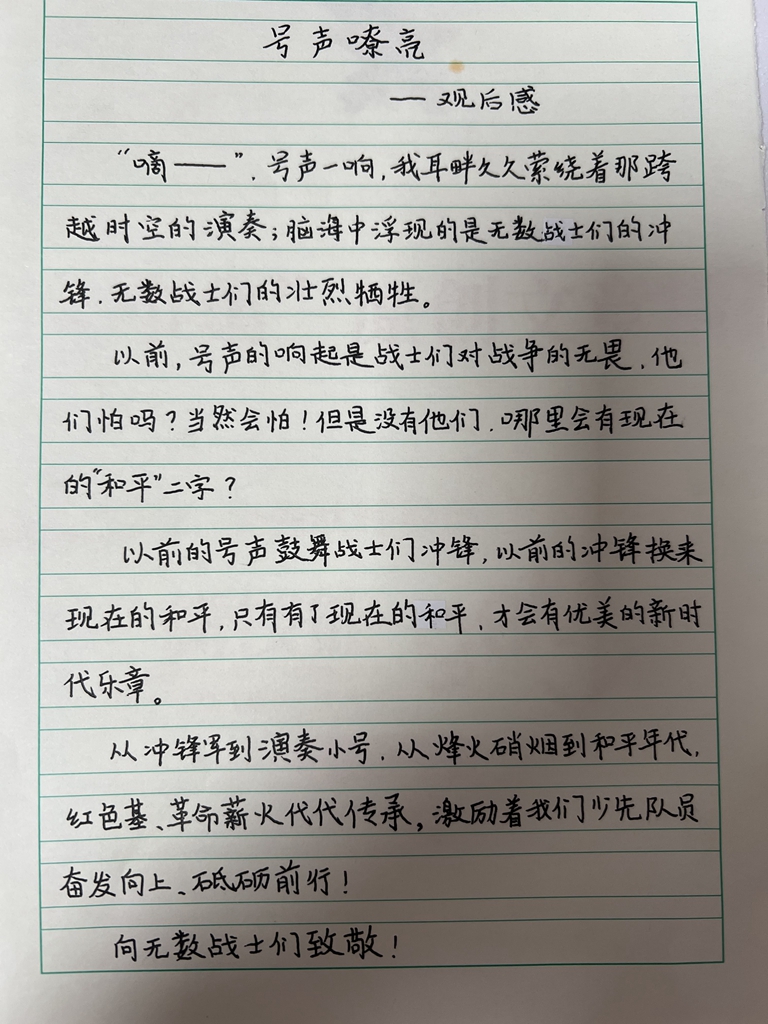 号声嘹亮
——观后感
“嘀——”，号声一响，我耳畔久久萦绕着那跨
越时空的演奏；脑海中浮现的是无数战士们的冲
锋，无数战士们的壮烈牺牲。
以前，号声的响起是战士们对战争的无畏，他
们怕吗？当然会怕！但是没有他们，哪里会有现在
的“和平”二字？
以前的号声鼓舞战士们冲锋，以前的冲锋换来
现在的和平，只有有了现在的和平，才会有优美的新时
代乐章。
从冲锋军到演奏小号，从烽火硝烟到和平年代，
红色基、革命薪火代代传承，激励着我们少先队员
奋发向上、砥砺前行！
向无数战士们致敬！